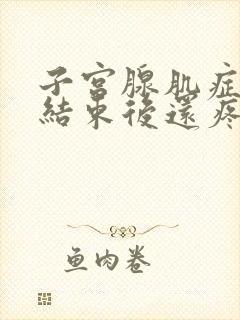 子宮腺肌症
結束後還疼
鱼肉卷